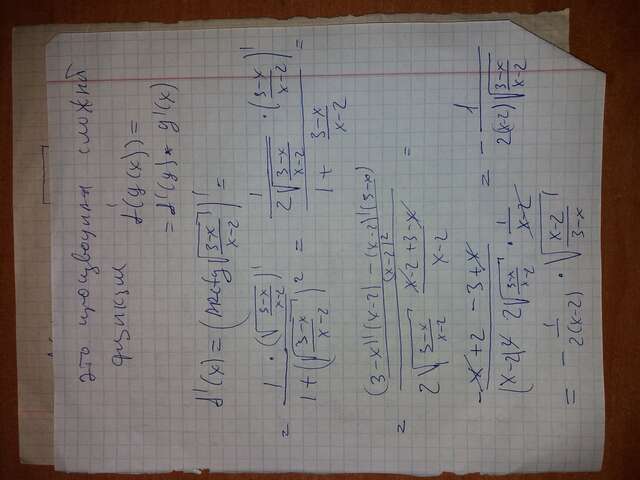 это производная сложной
функции
f'(g(x)) =
= f'(g) * g'(x)
f'(x) = (Arctg √((3-x)/(x-2)))' =
= (1 · (√((3-x)/(x-2)))') / (1 + (√((3-x)/(x-2)))²) = (1/(2√((3-x)/(x-2))) · ((3-x)/(x-2))') / (1 + (3-x)/(x-2)) =
= (((3-x)'(x-2) - (x-2)'(3-x)) / (x-2)²) / (2√((3-x)/(x-2)) (x-2+3-x)/(x-2)) =
(-x+2-3+x) / ((x-2)² 2√((3-x)/(x-2)) · 1/(x-2)) = - 1/(2(x-2)√((3-x)/(x-2)))
= - 1/(2(x-2)) · √((x-2)/(3-x))